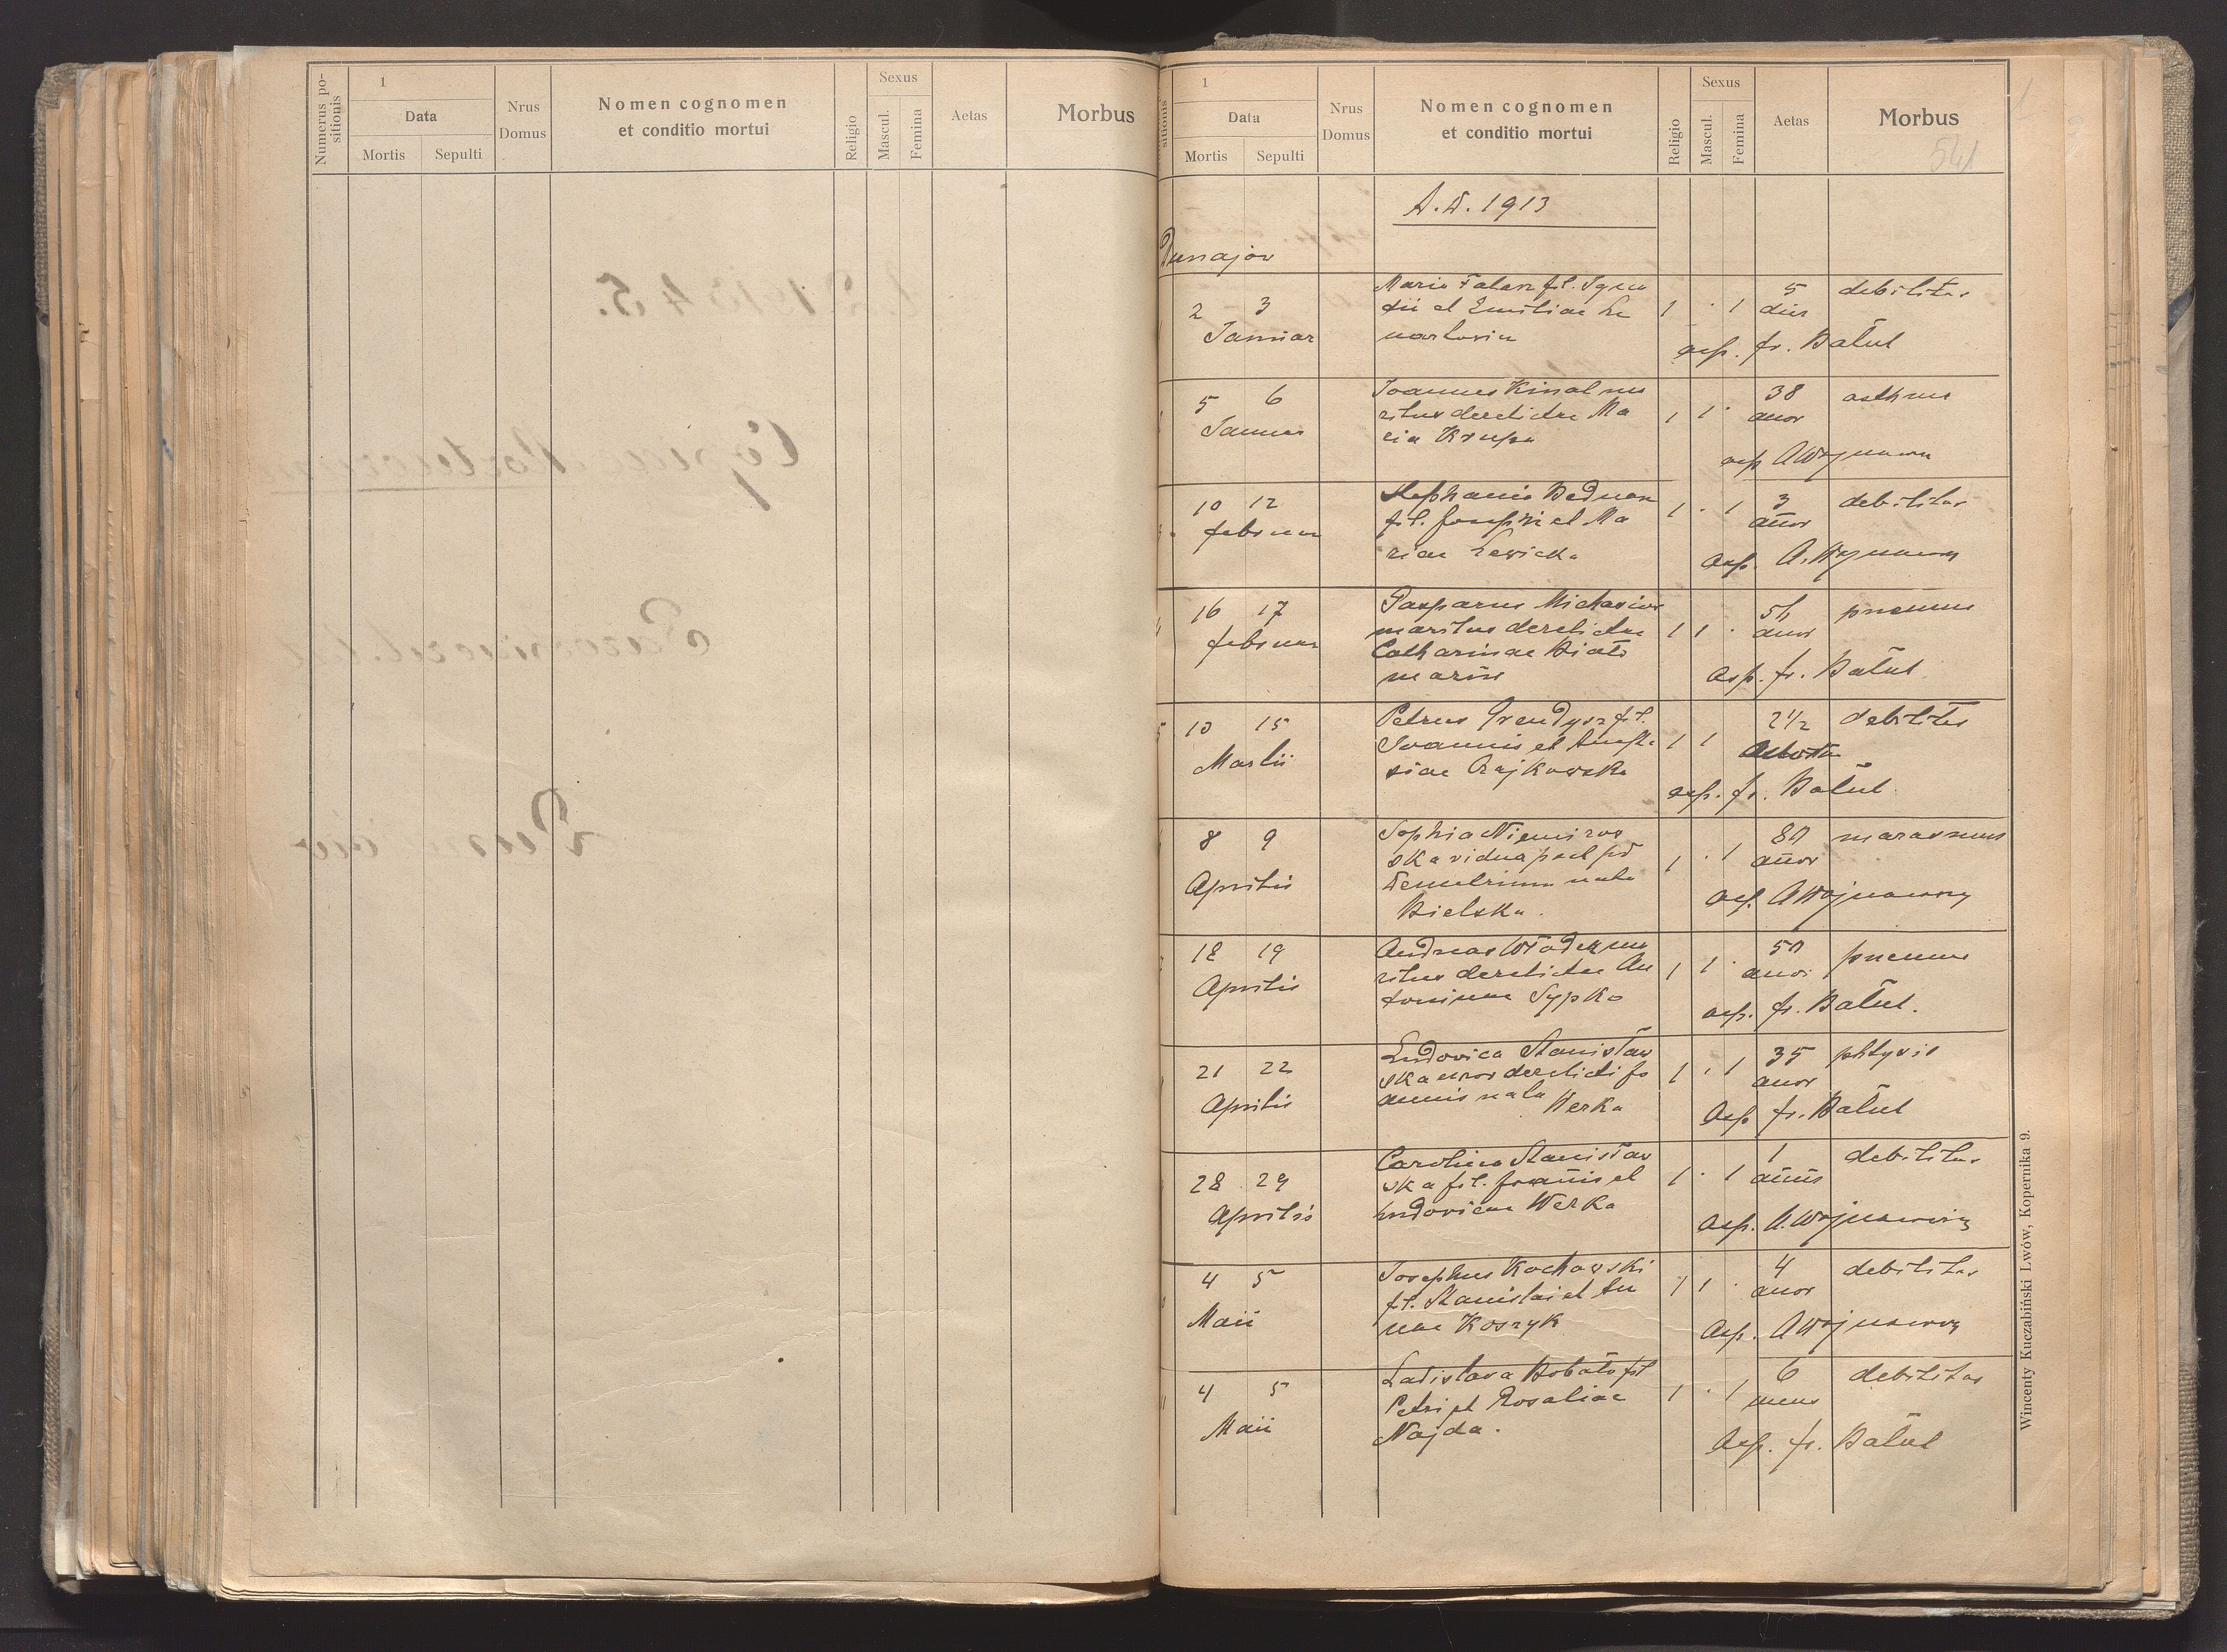 Numerus po-
sitionis
1
Data
Mortis Sepulti
Nrus
Domus
Nomen cognomen
et conditio mortui
Religio
Sexus
Mascul.
Femina
Aetas
Morbus
sitionis
1
Data
Mortis Sepulti
Nrus
Domus
Nomen cognomen
et conditio mortui
Religio
Sexus
Mascul.
Femina
Aetas
Morbus
541
A.D. 1913
Dunajów
2 3
Januar
Maria Falarz fil.
et Emiliae Le
nartowicz
1 · 1
5
dies
debilitas
asp. fr. Bałut
5 6
Januar
Joannes Kinal ma
ritus derelictae Ma
ria Krupa
1 1 ·
38
anor
asthma
asp A Wojnarow
10 12
februar
Stephania Bednarz
fil. Josephi et Ma
riae Lewicka
1 · 1
3
anor
debilitas
asp. A. Wojnarowicz
16 17
februar
Gasparus
maritus derelictae
Catharinae Biało
marin
1 1 ·
54
anor
pneumo
asp. fr. Bałut
5
10 15
Martii
Petrus Grendysz fil.
Joannis et Anasta
siae Rajkowska
1 1
2 1/2
debilitas
asp. fr. Bałut
8 9
Aprilis
Sophia Niemirow
ska vidua post
Demetrium nata
Bielska.
1 · 1
80
anor
marasmus
asp. A Wojnarowicz
18 19
Aprilis
Andreas Włodek ma
ritus derelictae An
toninae Sypko
1 1 ·
50
anor
pneumo
asp. fr. Bałut.
21 22
Aprilis
Ludovica Stanisław
ska uxor derelicti Jo
annis nata Werka
1 · 1
35
anor
phtysis
Asp fr. Bałut
28 29
Aprilis
Carolina Stanisław
ska fil. Joannis et
Ludovicae Werka
1 · 1
1
annus
debilitas
asp. A. Wojnarowicz
4 5
Maii
Josephus Kochowski
fil. Stanislai et An
nae Koszyk
1 1 ·
4
anor
debilitas
Asp. A Wojnarowicz
11
4 5
Maii
Ladislava Bobało fil
Petri et Rosaliae
Najda.
1 · 1
6
mens
debilitas
Asp. fr. Bałut
Wincenty Kuczabiński Lwów, Kopernika 9.